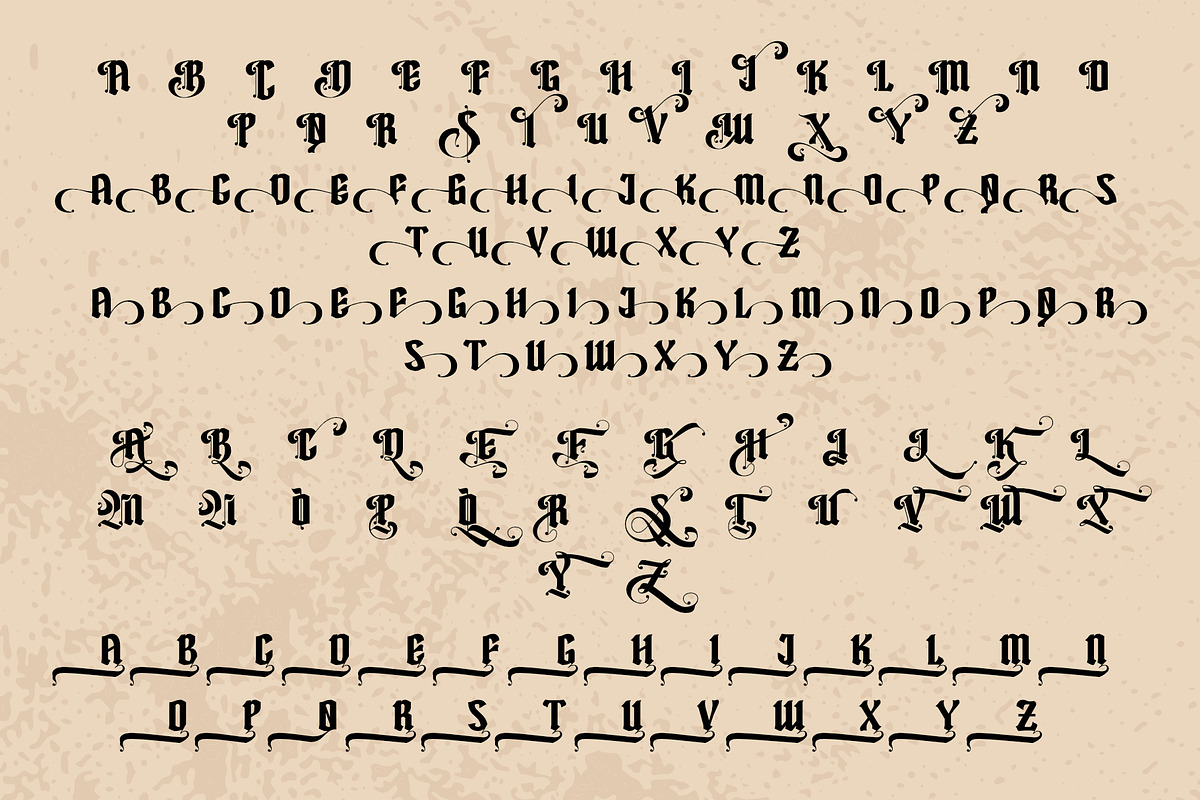 A B C D E F G H I J K L M N O
P Q R S T U V W X Y Z
A B C D E F G H I J K M N O P Q R S
T U V W X Y Z
A B C D E F G H I J K L M N O P Q R
S T U W X Y Z
A B C D E F G H I J K L
M N O P Q R S T U V W X
Y Z
A B C D E F G H I J K L M N
O P Q R S T U V W X Y Z